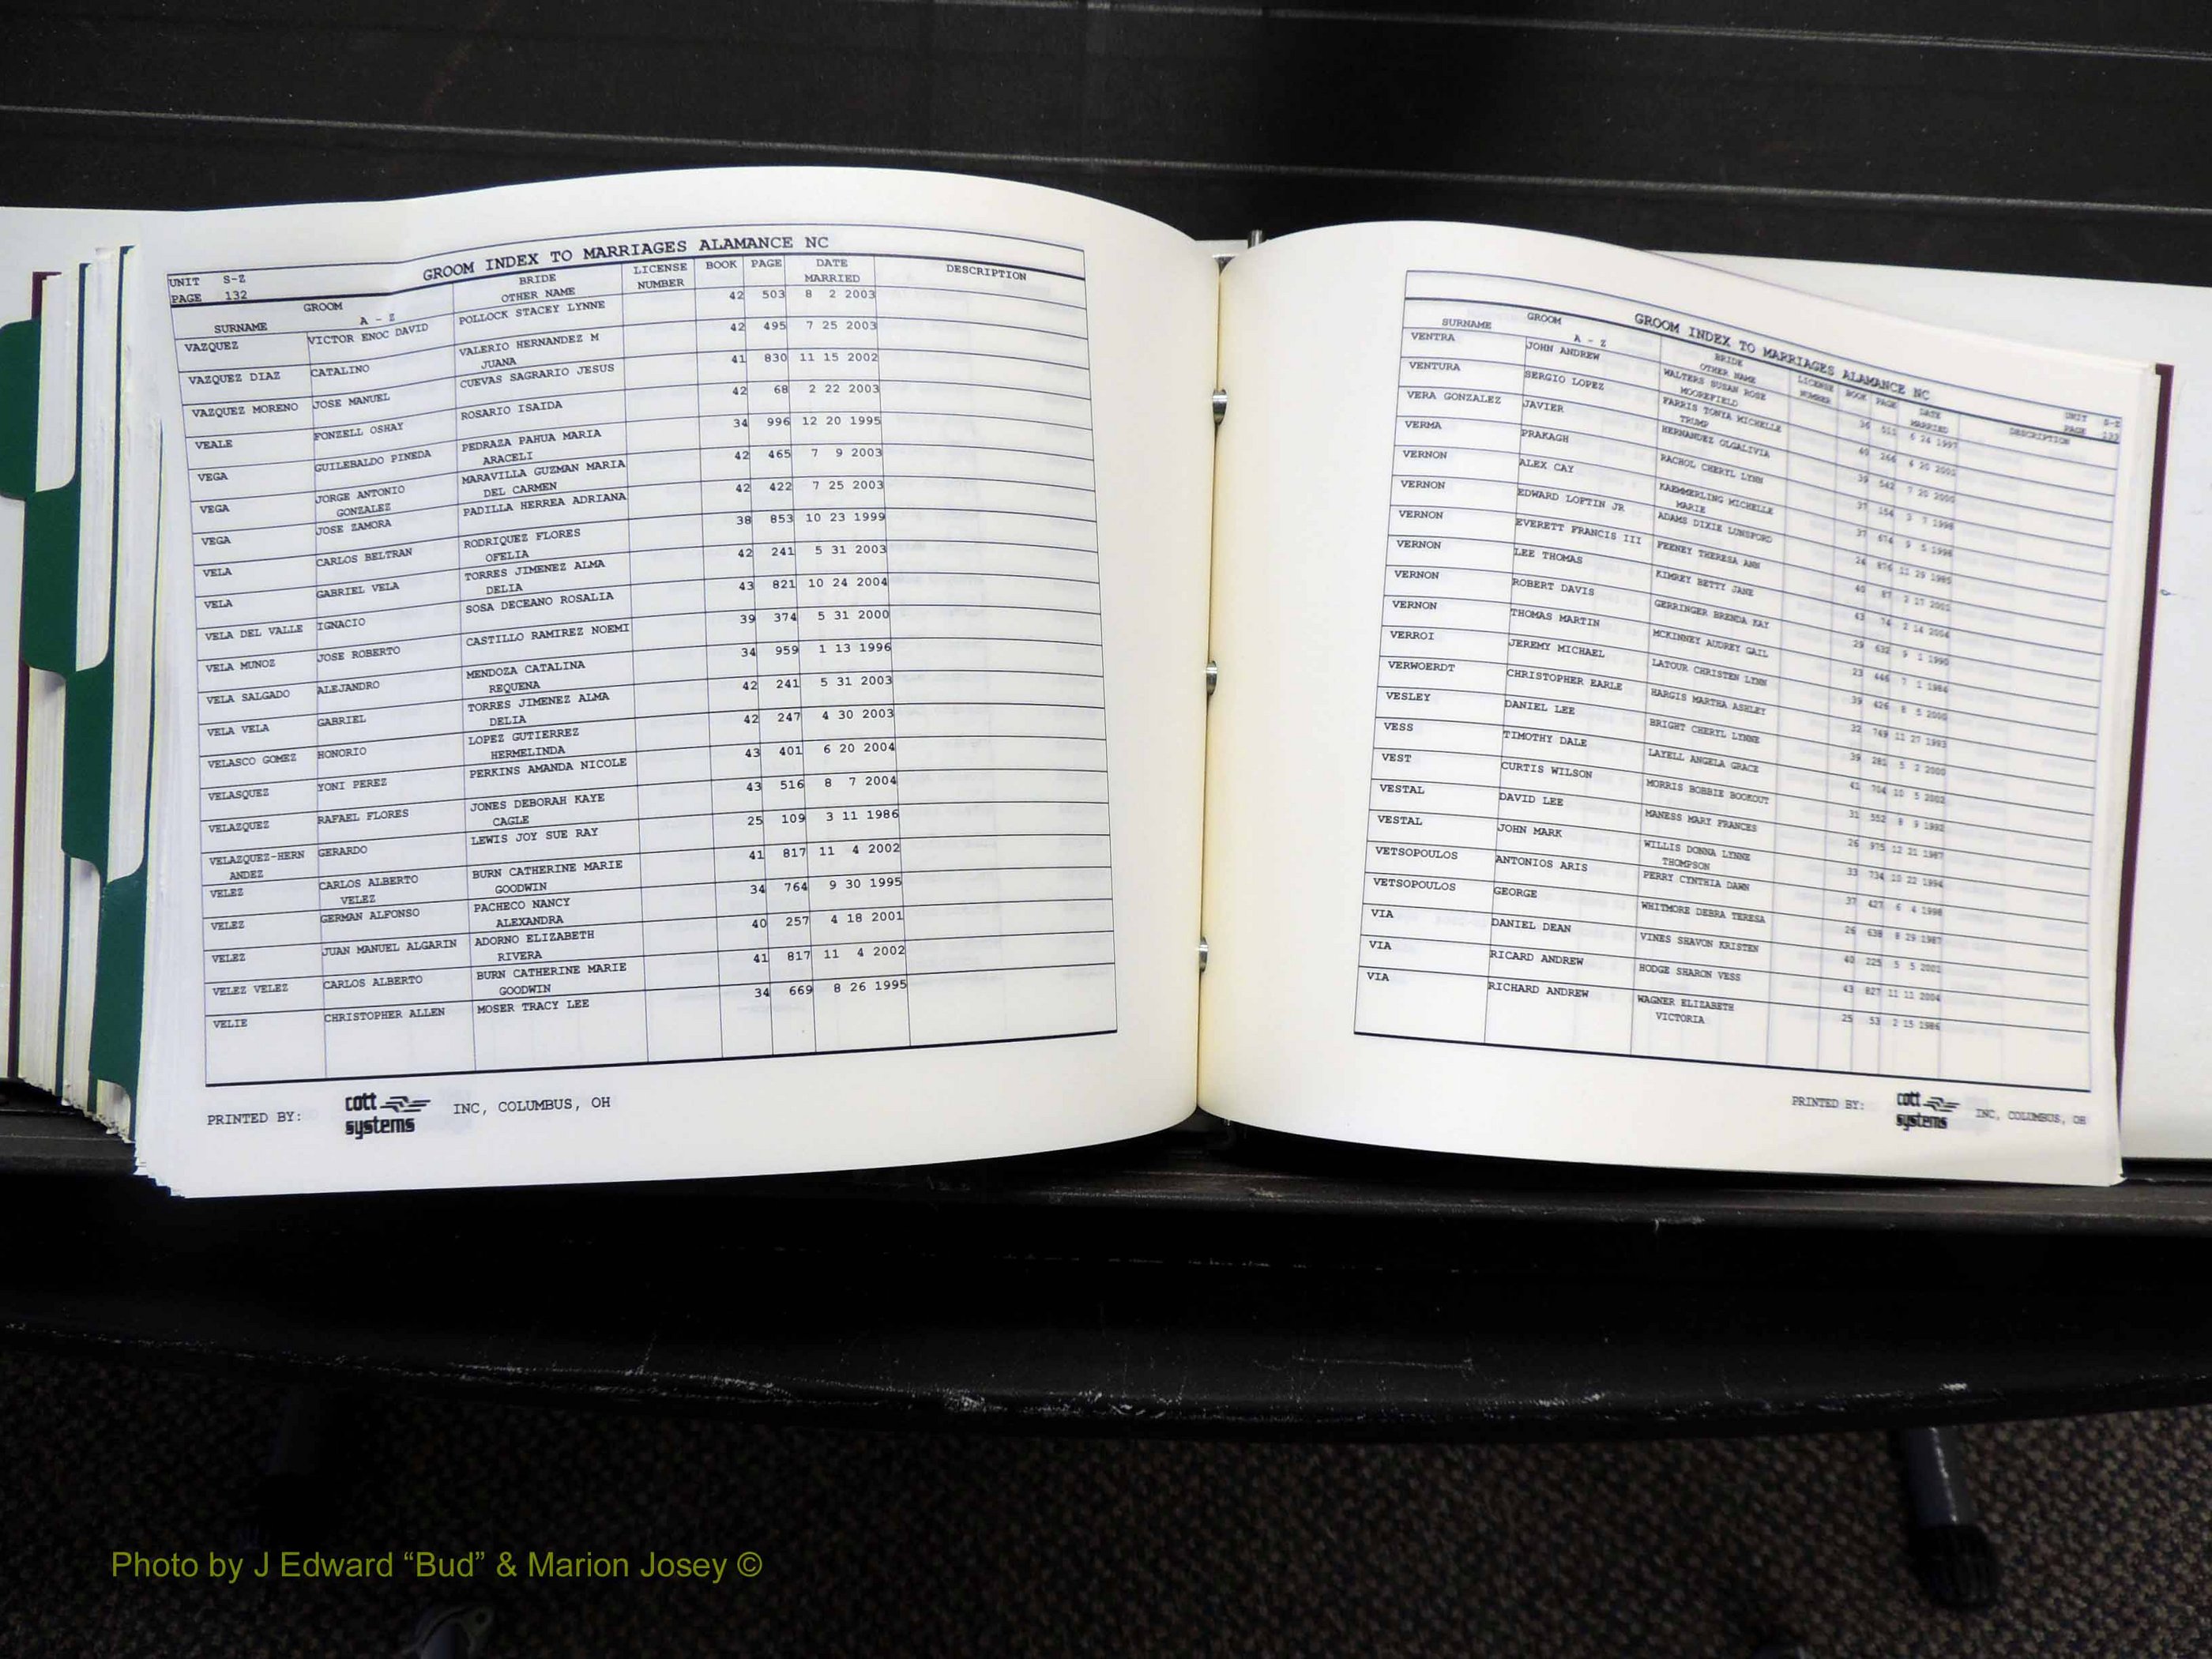 UNIT S-Z
PAGE 132
GROOM INDEX TO MARRIAGES ALAMANCE NC
GROOM BRIDE LICENSE BOOK PAGE DATE DESCRIPTION
SURNAME A - Z OTHER NAME NUMBER MARRIED
VAZQUEZ VICTOR ENOC DAVID POLLOCK STACEY LYNNE 42 503 8 2 2003
VAZQUEZ DIAZ CATALINO VALERIO HERNANDEZ M 42 495 7 25 2003
JUANA
VAZQUEZ MORENO JOSE MANUEL CUEVAS SAGRARIO JESUS 41 830 11 15 2002
VEALE FONZELL OSHAY ROSARIO ISAIDA 42 68 2 22 2003
VEGA GUILEBALDO PINEDA PEDRAZA PAHUA MARIA 34 996 12 20 1995
ARACELI
VEGA JORGE ANTONIO MARAVILLA GUZMAN MARIA 42 465 7 9 2003
GONZALEZ DEL CARMEN
VEGA JOSE ZAMORA PADILLA HERREA ADRIANA 42 422 7 25 2003
VELA CARLOS BELTRAN RODRIQUEZ FLORES 38 853 10 23 1999
OFELIA
VELA GABRIEL VELA TORRES JIMENEZ ALMA 42 241 5 31 2003
DELIA
VELA DEL VALLE IGNACIO SOSA DECEANO ROSALIA 43 821 10 24 2004
VELA MUNOZ JOSE ROBERTO CASTILLO RAMIREZ NOEMI 39 374 5 31 2000
VELA SALGADO ALEJANDRO MENDOZA CATALINA 34 959 1 13 1996
REQUENA
VELA VELA GABRIEL TORRES JIMENEZ ALMA 42 241 5 31 2003
DELIA
VELASCO GOMEZ HONORIO LOPEZ GUTIERREZ 42 247 4 30 2003
HERMELINDA
VELASQUEZ YONI PEREZ PERKINS AMANDA NICOLE 43 401 6 20 2004
VELAZQUEZ RAFAEL FLORES JONES DEBORAH KAYE 43 516 8 7 2004
CAGLE
VELAZQUEZ-HERN GERARDO LEWIS JOY SUE RAY 25 109 3 11 1986
ANDEZ
VELEZ CARLOS ALBERTO BURN CATHERINE MARIE 41 817 11 4 2002
VELEZ GOODWIN
VELEZ GERMAN ALFONSO PACHECO NANCY 34 764 9 30 1995
ALEXANDRA
VELEZ JUAN MANUEL ALGARIN ADORNO ELIZABETH 40 257 4 18 2001
RIVERA
VELEZ VELEZ CARLOS ALBERTO BURN CATHERINE MARIE 41 817 11 4 2002
GOODWIN
VELIE CHRISTOPHER ALLEN MOSER TRACY LEE 34 669 8 26 1995
PRINTED BY: cott systems INC, COLUMBUS, OH
GROOM INDEX TO MARRIAGES ALAMANCE NC
UNIT S-Z
PAGE 133
GROOM BRIDE LICENSE BOOK PAGE DATE DESCRIPTION
SURNAME A - Z OTHER NAME NUMBER MARRIED
VENTRA JOHN ANDREW WALTERS SUSAN ROSE 36 511 6 24 1997
MOOREFIELD
VENTURA SERGIO LOPEZ FARRIS TONYA MICHELLE 40 266
TRUMP
VERA GONZALEZ JAVIER HERNANDEZ OLGALIVIA 39 542 7 20 2000
VERMA PRAKAGH RACHOL CHERYL LYNN 37 154 3 7 1998
VERNON ALEX CAY KAEMMERLING MICHELLE 37 674 9 5 1998
MARIE
VERNON EDWARD LOFTIN JR ADAMS DIXIE LUNSFORD 24 876 11 29 1985
VERNON EVERETT FRANCIS III FEENEY THERESA ANN 40 87
VERNON LEE THOMAS KIMREY BETTY JANE 43 74 2 14 2004
VERNON ROBERT DAVIS GERRINGER BRENDA KAY 29 632 9 1 1990
VERNON THOMAS MARTIN MCKINNEY AUDREY GAIL 23 446 7 1 1984
VERROI JEREMY MICHAEL LATOUR CHRISTEN LYNN 39 426 8 5 2000
VERWOERDT CHRISTOPHER EARLE HARGIS MARTHA ASHLEY 32 749 11 27 1993
VESLEY DANIEL LEE BRIGHT CHERYL LYNNE 39 281 5 2 2000
VESS TIMOTHY DALE LAYELL ANGELA GRACE 41 704 10 5 2002
VEST CURTIS WILSON MORRIS BOBBIE BOOKOUT 31 552 8 9 1992
VESTAL DAVID LEE MANESS MARY FRANCES 26 975 12 21 1987
VESTAL JOHN MARK WILLIS DONNA LYNNE 33 734 10 22 1994
THOMPSON
VETSOPOULOS ANTONIOS ARIS PERRY CYNTHIA DAWN 37 427 6 4 1998
VETSOPOULOS GEORGE WHITMORE DEBRA TERESA 26 638 8 29 1987
VIA DANIEL DEAN VINES SHAVON KRISTEN 40 225 5 5 2001
VIA RICARD ANDREW HODGE SHARON VESS 43 827 11 11 2004
VIA RICHARD ANDREW WAGNER ELIZABETH 25 53 2 15 1986
VICTORIA
PRINTED BY: cott systems INC, COLUMBUS, OH
Photo by J Edward “Bud” & Marion Josey ©